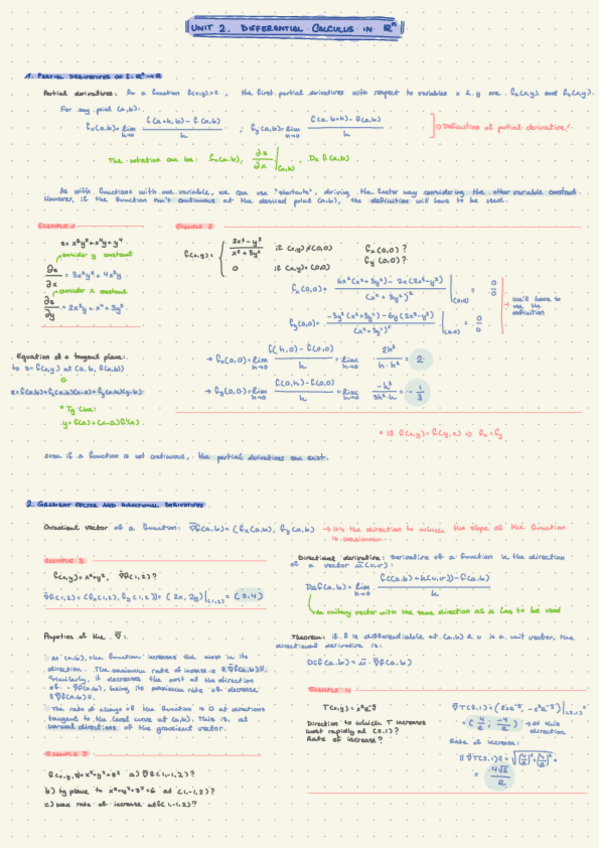 UNIT 2. DIFFERENTIAL CALCULUS IN ℝⁿ
1. PARTIAL DERIVATIVES OF f: ℝⁿ→ℝ
Partial derivatives: for a function f(x,y)=z, the first partial derivatives with respect to variables x & y are fx(x,y) and fy(x,y).
For any point (a,b):
fx(a,b)=lim h→0 f(a+h,b)-f(a,b) / h ; fy(a,b)=lim h→0 f(a,b+h)-f(a,b) / h → Definition of partial derivative!
The notation can be: fx(a,b), ∂z/∂x |(a,b), Dx f(a,b)
As with functions with one variable, we can use "shortcuts", deriving the faster way considering the other variable constant.
However, if the function isn't continuous at the desired point (a,b), the definition will have to be used.
EXAMPLE 1
z= x³y²+x⁴y+y⁴
consider y constant
∂z/∂x = 3x²y²+4x³y
consider x constant
∂z/∂y = 2x³y+x⁴+4y³
EXAMPLE 2
f(x,y)= { 2x³-y³ / x²+3y² if (x,y)≠(0,0) fx(0,0)?
0 if (x,y)=(0,0) fy(0,0)?
fx(0,0)= 6x²(x²+3y²)-2x(2x³-y³) / (x²+3y²)² |(0,0) = 0/0
→ we'll have to use the definition
fy(0,0)= -3y²(x²+3y²)-6y(2x³-y³) / (x²+3y²)² |(0,0) = 0/0
→ fx(0,0)=lim h→0 f(h,0)-f(0,0) / h = lim h→0 2h³ / h·h² = 2
→ fy(0,0)=lim h→0 f(0,h)-f(0,0) / h = lim h→0 -h³ / 3h²·h = -1/3
Equation of a tangent plane:
to z=f(x,y) at (a,b,f(a,b))
z=f(a,b)+fx(a,b)(x-a)+fy(a,b)(y-b)
* Tg line:
y=f(a)+(x-a)f'(a)
* If f(x,y)=f(y,x) ⇒ fx=fy
Even if a function is not continuous, the partial derivatives can exist.
2. GRADIENT VECTOR AND DIRECTIONAL DERIVATIVES
Gradient vector of a function: ∇f(a,b)=(fx(a,b), fy(a,b)) → It's the direction to which the slope of the function
is maximum.
EXAMPLE 3
f(x,y)=x²+y², ∇f(1,2)?
∇f(1,2)=(fx(1,2), fy(1,2))=(2x, 2y)|(1,2)=(2,4)
Directional derivative: Derivative of a function in the direction
of a vector u(u,v):
Duf(a,b)=lim h→0 f((a,b)+h(u,v))-f(a,b) / h
→ An unitary vector with the same direction as u has to be used
Properties of the ∇:
At (a,b), the function increases the most in its
direction. The maximum rate of increase is ‖∇f(a,b)‖.
Similarly, it decreases the most at the direction
of -∇f(a,b), being its maximum rate of decrease
‖∇f(a,b)‖.
The rate of change of the function is 0 at directions
tangent to the level curve at (a,b). This is, at
directions of the gradient vector.
Theorem: If f is differentiable at (a,b) & u is a unit vector, the
directional derivative is:
Duf(a,b)=u·∇f(a,b)
EXAMPLE 4
T(x,y)=x²e⁻ʸ
Direction to which T increases
most rapidly at (2,1)?
Rate of increase?
∇T(2,1)=(2xe⁻ʸ, -x²e⁻ʸ)|(2,1)=
=(4/e, -4/e) → At this direction
Rate of increase:
‖∇T(2,1)‖=√(4/e)²+(4/e)²=
= 4√2/e
EXAMPLE 5
f(x,y,z)=x²+y²+z² a) ∇f(1,-1,2)?
b) tg plane to x²+y²+z²=6 at (1,-1,2)?
c) max rate of increase at f(1,-1,2)?